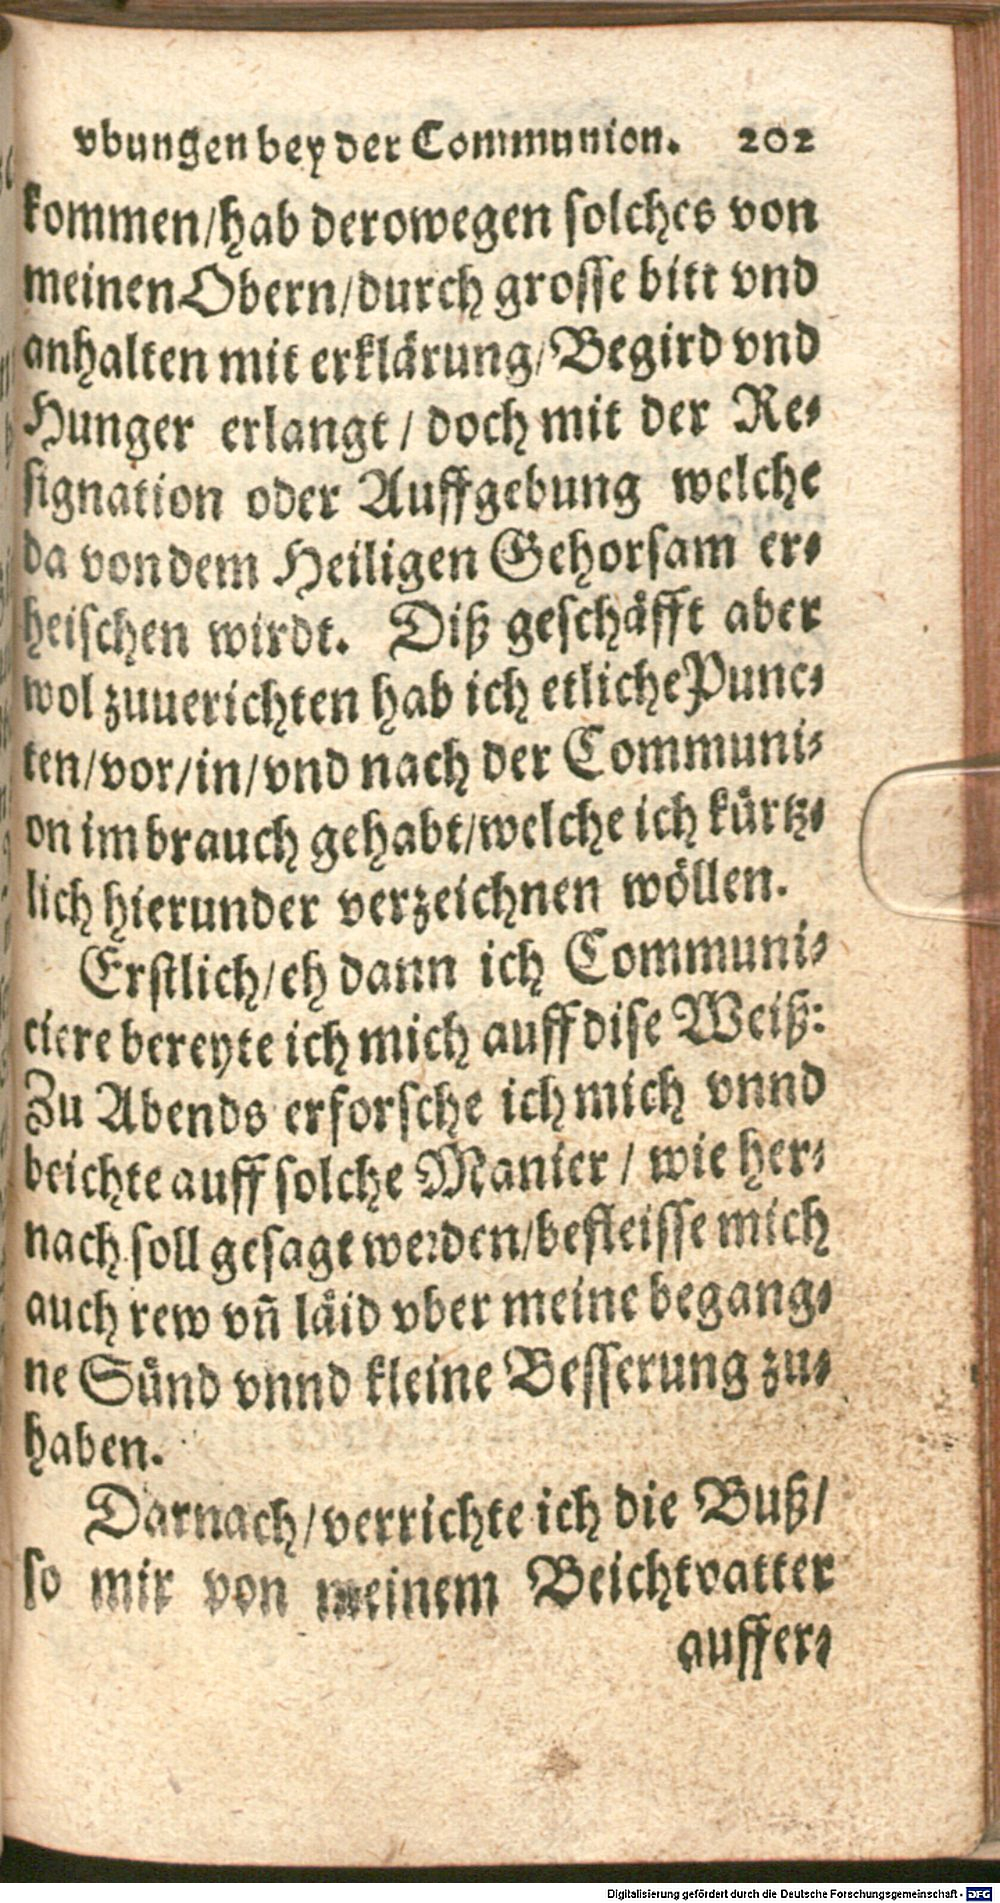 vbungen bey der Communion. 202
kommen/hab derowegen solches von
meinen Obern/durch grosse bitt vnd
anhalten mit erklärung/Begird vnd
Hunger erlangt / doch mit der Re-
signation oder Auffgebung welche
da von dem Heiligen Gehorsam er-
heischen wirdt. Diß geschäfft aber
wol zuuerichten hab ich etliche Punc-
ten/vor/in/vnd nach der Communi-
on im brauch gehabt/welche ich kürtz-
lich hierunder verzeichnen wöllen.
Erstlich/eh dann ich Communi-
ciere bereyte ich mich auff dise Weiß:
Zu Abends erforsche ich mich vnnd
beichte auff solche Manier / wie her-
nach soll gesagt werden/befleisse mich
auch rew vñ läid vber meine begang-
ne Sünd vnnd kleine Besserung zu-
haben.
Darnach/verrichte ich die Buß/
so mir von meinem Beichtvatter
auffer-
Digitalisierung gefördert durch die Deutsche Forschungsgemeinschaft - DFG